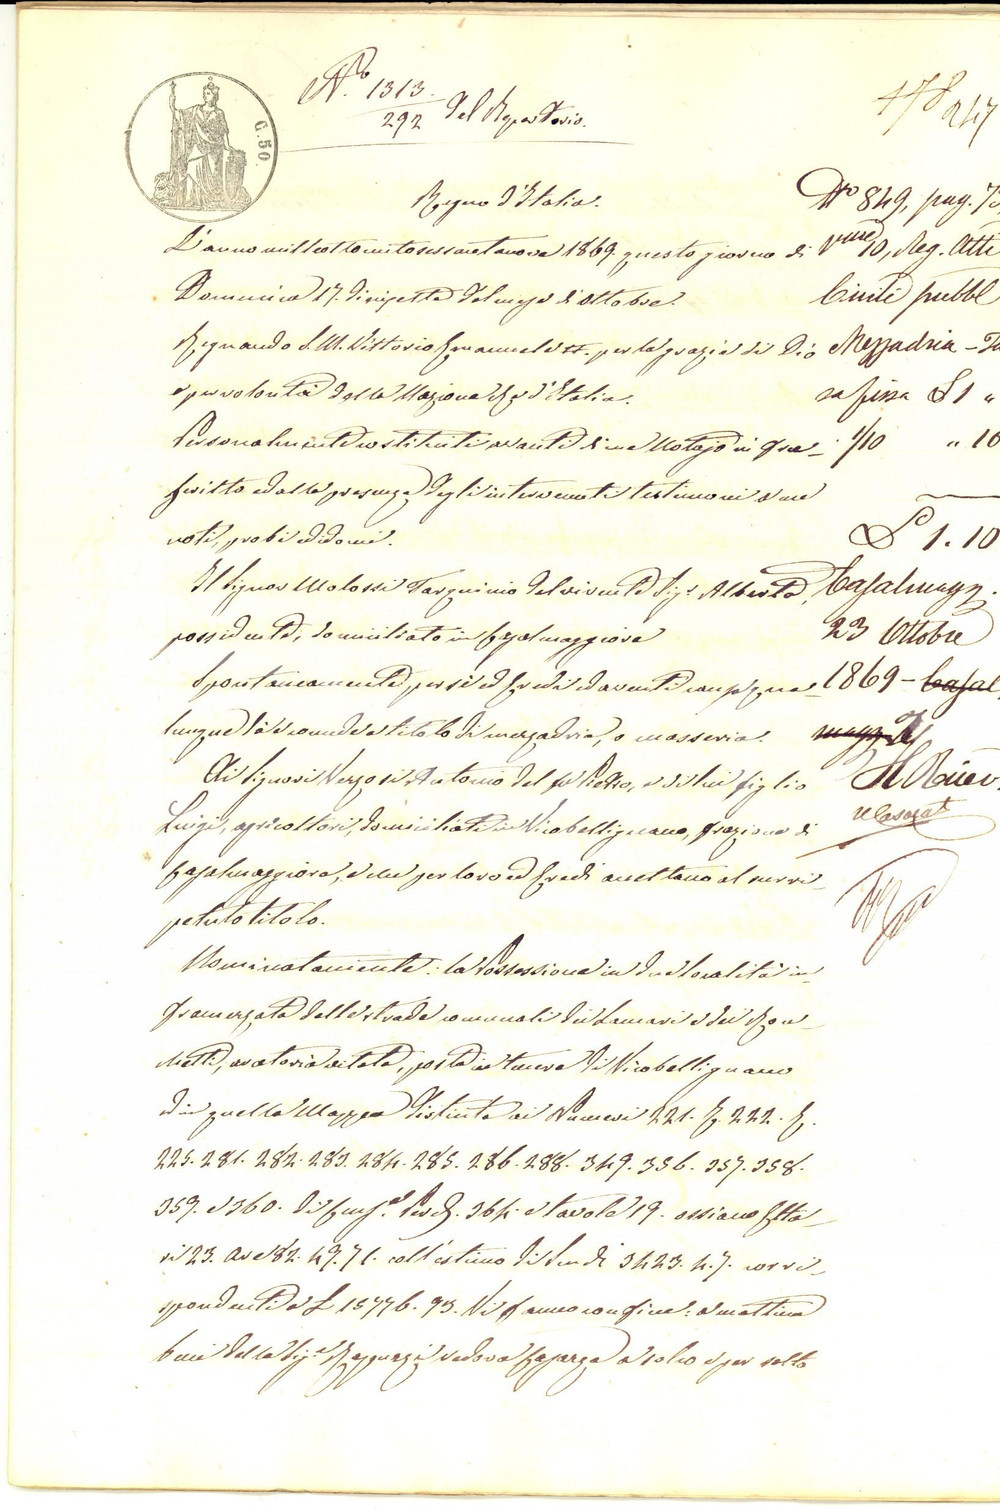 C. 50.
N.° 1313/292 del Repertorio.
478
247
Regno d'Italia.
L'anno milleottocentosessantanove 1869. questo giorno di
Domenica 17. diciasette del mese di Ottobre.
Regnando S. M. Vittorio Emanuele II. per la grazia di Dio
e per volontà della Nazione Re d'Italia.
Personalmente costituiti avanti di me Notajo in fra-
scritto ed alla presenza degli intervenuti testimonj a me
noti, probi ed idonei.
Il Signor Molossi Tarquinio del vivente Sig.r Alberto,
possidente, domiciliato in Casalmaggiore
Spontaneamente, per sè ed Eredi ed aventi causa qua-
lunque dà e concede a titolo di mezzadria, o masseria.
Ai Signori Verzosi Antonio del fu Pietro, e di lui figlio
Luigi, agricoltori, domiciliati in Vicobellignano, frazione di
Casalmaggiore, che per loro ed Eredi accettano al surri-
petuto titolo.
Nominatamente: la Possessione in due località in-
framezzata dalle strade comunali dei Lamari e dei Ron-
chetti, aratoria vitata, posta in terra di Vicobellignano
ed in quella Mappa distinta ai Numeri 221. E. 222. E.
225. 281. 282. 283. 284. 285. 286. 288. 349. 356. 357. 358.
359. e 360. di Cens.e Pert. 364. e tavole 19. ossiano Etta-
ri 23. are 82. 49. 71. coll'estimo di Scudi 3423. 4. 7. corri-
spondenti a £ 15776. 93. Vi fanno confine: a mattina
beni della Sig.ra vedova a solco e per salto
N.o 849, pag. 73
Vol. 10, Reg. Atti
Civili pubbl
Mezzadria - Tas
sa fissa £ 1 "
1/10 " 10
£ 1. 10
Casalmagg.
23 Ottobre
1869 - Casal
magg.
Il Ricev.